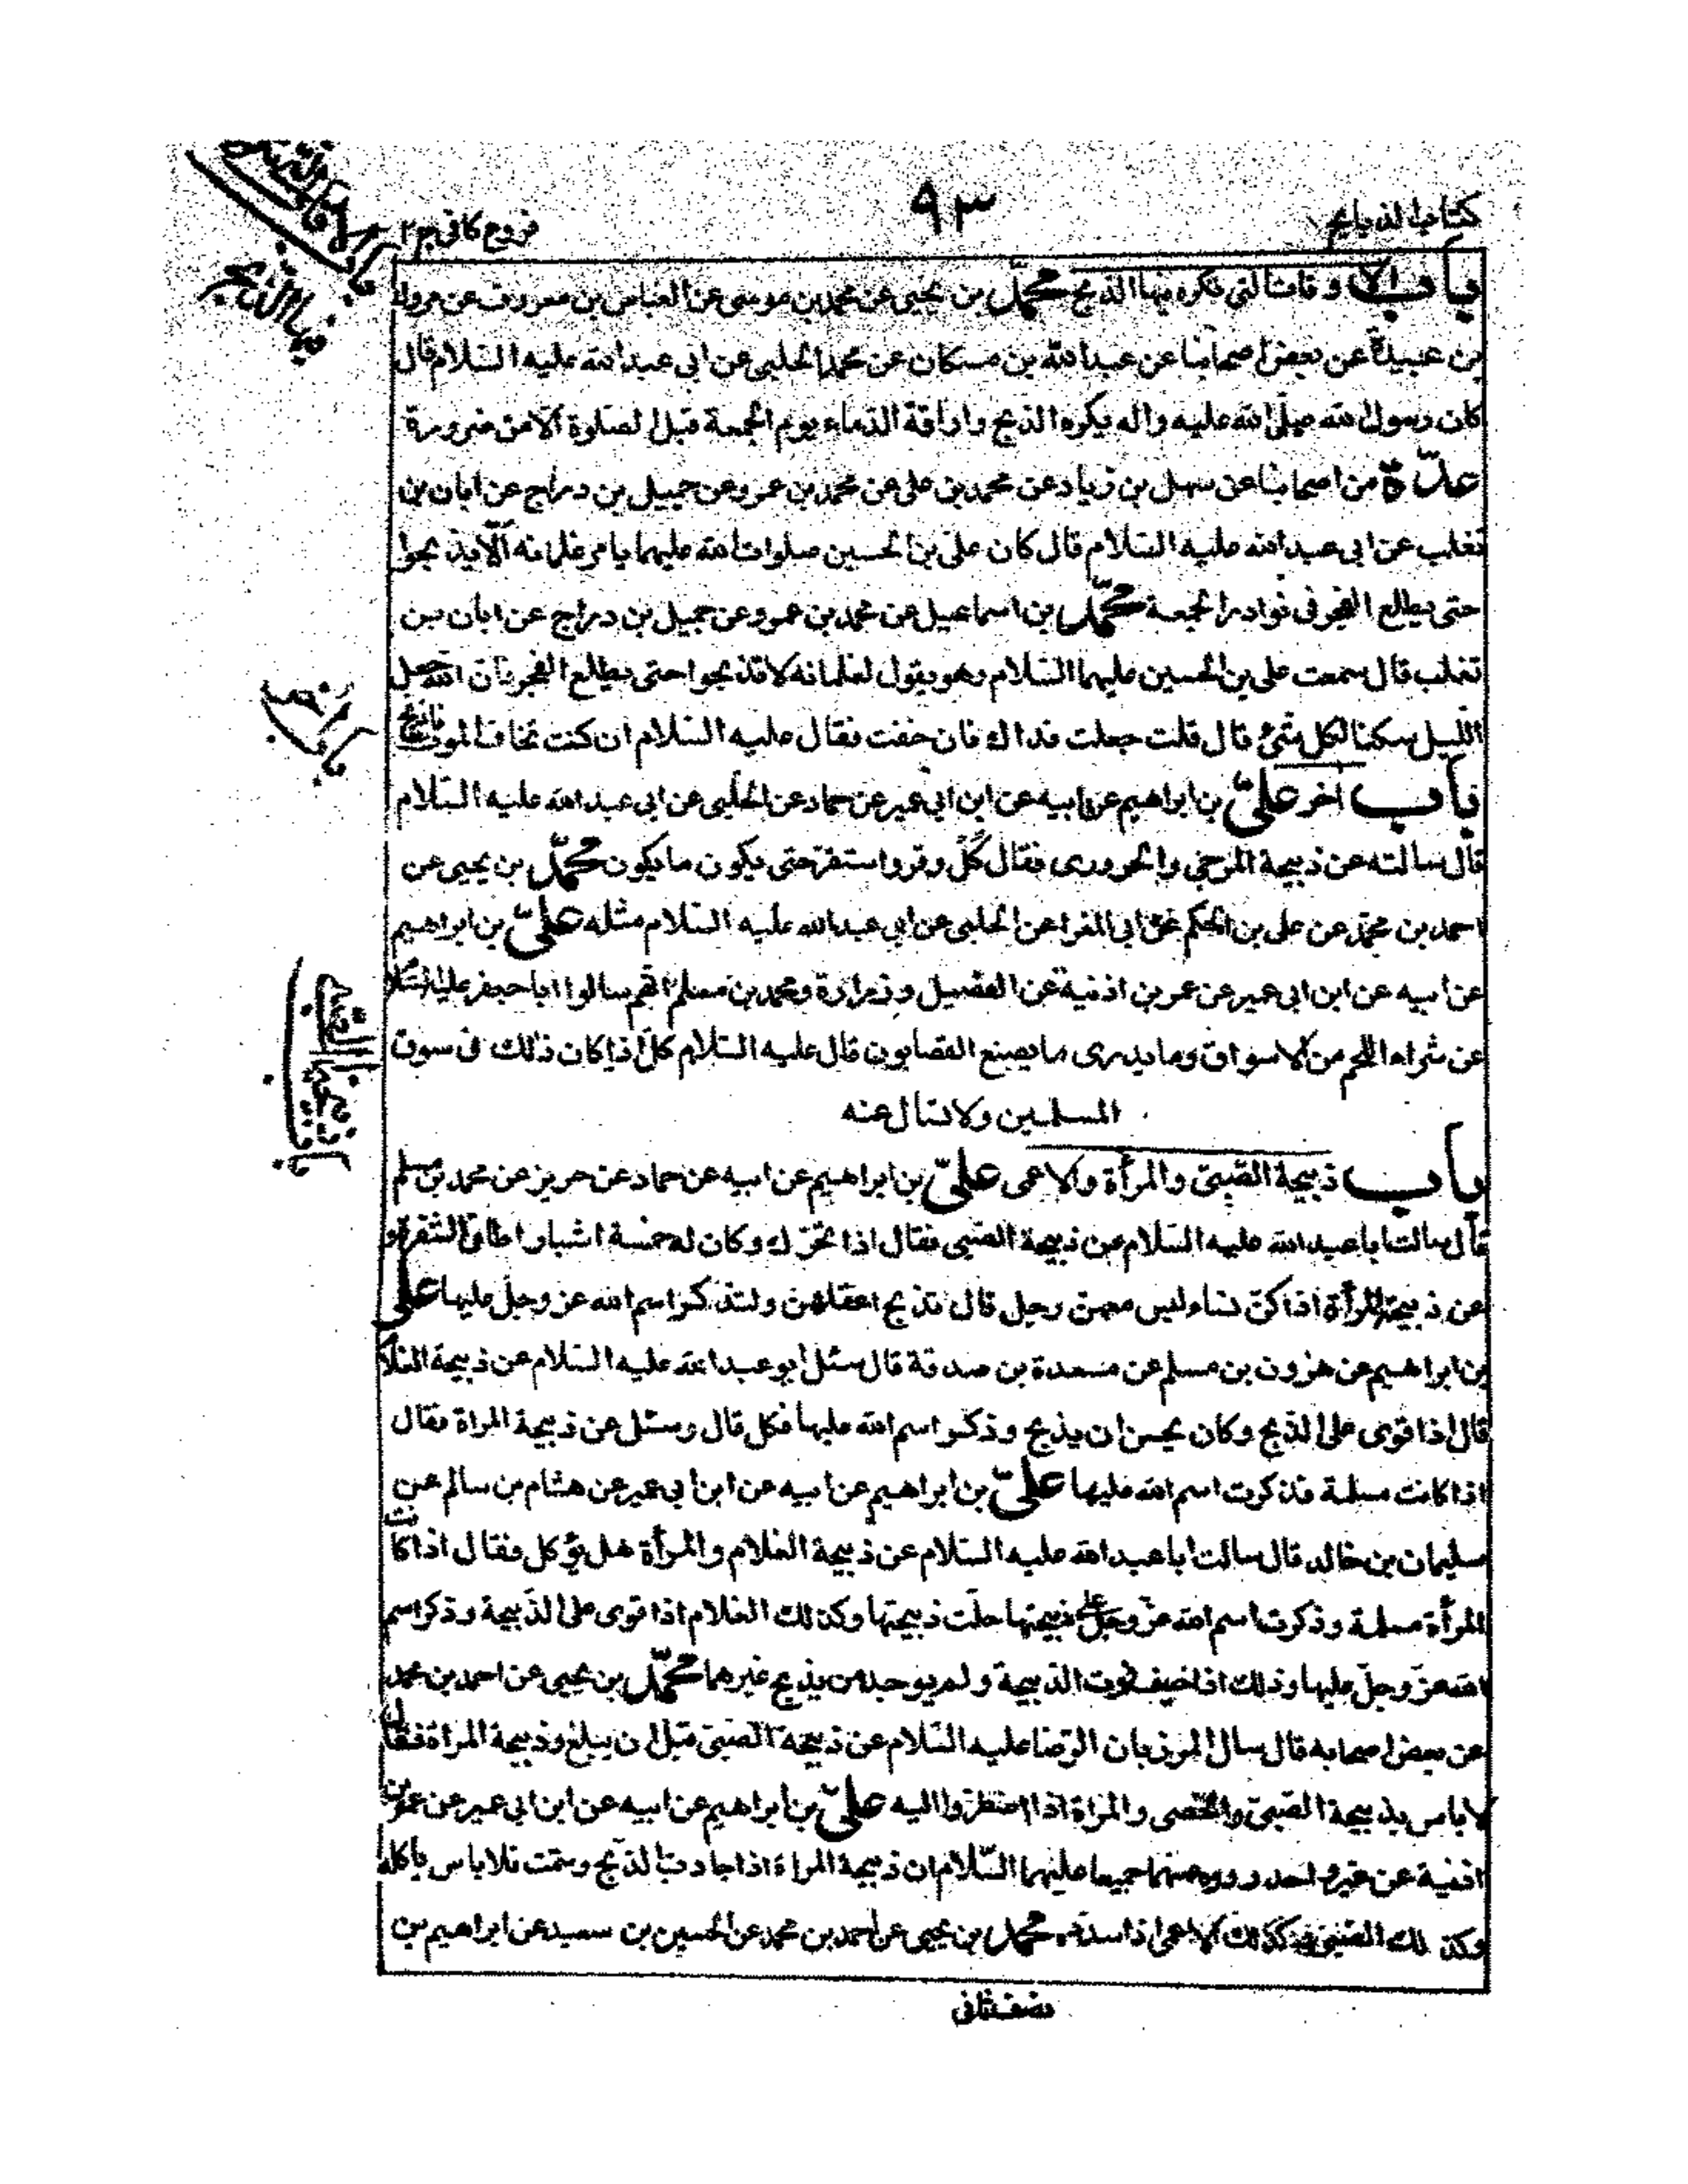 كتاب الذبايح
٩٣
فروع كافى ج ٢
باب الاوقات التى تكره فيها الذبح محمّد بن يحيى عن محمد بن موسى عن العباس بن معروف عن مروك
بن عبيدة عن بعض اصحابنا عن عبد الله بن مسكان عن محمد الحلبى عن ابى عبد الله عليه السّلام قال
كان رسول الله صلّى الله عليه واله يكره الذبح واراقة الدماء يوم الجمعة قبل الصلوة الا من ضرورة
عدّة من اصحابنا عن سهل بن زياد عن محمد بن على عن محمد بن عمرو عن جميل بن دراج عن ابان بن
تغلب عن ابى عبد الله عليه السّلام قال كان على بن الحسين صلوات الله عليهما يامر غلمانه الّا يذبحوا
حتى يطلع الفجر فى نوادر الجمعة محمّد بن اسماعيل عن محمد بن عمرو عن جميل بن دراج عن ابان بن
تغلب قال سمعت على بن الحسين عليهما السّلام وهو يقول لغلمانه لا تذبحوا حتى يطلع الفجر فان الله جعل
الليل سكنا لكل شئ قال قلت جعلت فداك فان خفت فقال عليه السّلام ان كنت تخاف الموت فاذبح
باب اخر علىّ بن ابراهيم عن ابيه عن ابن ابى عمير عن حماد عن الحلبى عن ابى عبد الله عليه السّلام
قال سالته عن ذبيحة المرجئ والحرورى فقال كُلْ وقر واستقر حتى يكون ما يكون محمّد بن يحيى عن
احمد بن محمّد عن على بن الحكم عن ابى المغرا عن الحلبى عن ابى عبد الله عليه السّلام مثله علىّ بن ابراهيم
عن ابيه عن ابن ابى عمير عن عمر بن اذنية عن الفضيل وزرارة ومحمد بن مسلم انهم سالوا ابا جعفر عليه السّلا
عن شراء اللحم من الاسواق وما يدرى ما يصنع القصابون قال عليه السّلام كل اذا كان ذلك فى سوق
المسلمين ولا تسال عنه
باب ذبيحة الصّبىّ والمرأة والاعمى علىّ بن ابراهيم عن ابيه عن حماد عن حريز عن محمد بن مسلم
قال سالت ابا عبد الله عليه السّلام عن ذبيحة الصّبى فقال اذا تحرّك وكان له خمسة اشبار اطاق الشفرة و
عن ذبيحة المرأة اذا كنّ نساء ليس معهن رجل قال تذبح اعقلهن ولتذكر اسم الله عز وجل عليها على
بن ابراهيم عن هرون بن مسلم عن مسعدة بن صدقة قال سئل ابو عبد الله عليه السّلام عن ذبيحة الغلا
قال اذا قوى على الذبح وكان يحسن ان يذبح وذكر اسم الله عليها فكل قال وسئل عن ذبيحة المراة فقال
اذا كانت مسلمة فذكرت اسم الله عليها علىّ بن ابراهيم عن ابيه عن ابن ابى عمير عن هشام بن سالم عن
سليمان بن خالد قال سالت ابا عبد الله عليه السّلام عن ذبيحة الغلام والمرأة هل تؤكل فقال اذا كانت
المرأة مسلمة وذكرت اسم الله عزّ وجلّ على ذبيحتها حلّت ذبيحتها وكذلك الغلام اذا قوى على الذّبيحة وذكر اسم
الله عزّ وجلّ عليها وذلك اذا خيف فوت الذبيحة ولم يوجد من يذبح غيرهما محمّد بن يحيى عن احمد بن محمد
عن بعض اصحابه قال سال المرزبان الرّضا عليه السّلام عن ذبيحة الصّبىّ قبل ان يبلغ وذبيحة المراة فقال
لا باس بذبيحة الصّبىّ والخصى والمراة اذا اضطرّوا اليه علىّ بن ابراهيم عن ابيه عن ابن ابى عمير عن عمر بن
اذنية عن غير واحد رووه عنهما جميعا عليهما السّلام ان ذبيحة المراة اذا اجادت الذّبح وسمّت فلا باس باكله
وكذلك الصّبىّ وكذلك الاعمى اذا سدّد محمّد بن يحيى عن احمد بن محمد عن الحسين بن سعيد عن ابراهيم بن
نصف ثانى